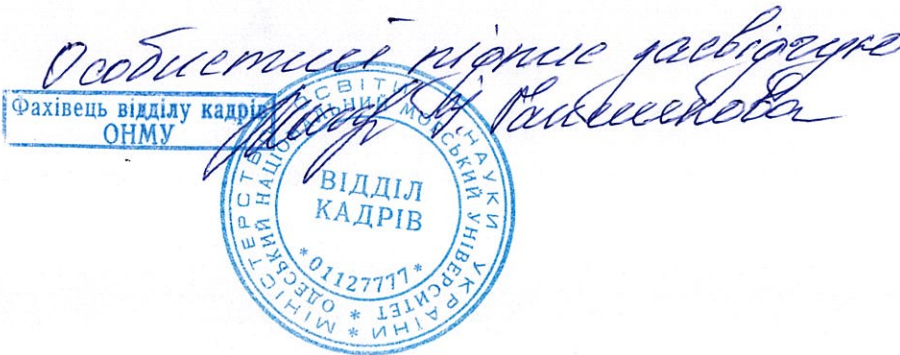 Особистий підпис засвідчую
Фахівець відділу кадрів
ОНМУ
МІНІСТЕРСТВО ОСВІТИ І НАУКИ УКРАЇНИ *
ОДЕСЬКИЙ НАЦІОНАЛЬНИЙ МОРСЬКИЙ УНІВЕРСИТЕТ *
ВІДДІЛ
КАДРІВ
* 01127777 *